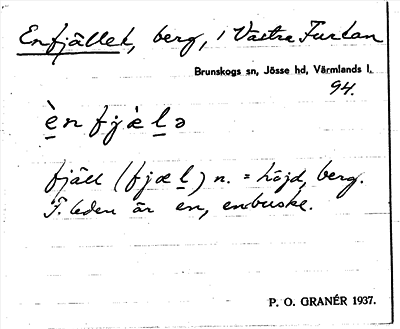 Enfjället, berg, i Västra Furtan
Brunskogs sn, Jösse hd, Värmlands l.
94.
è̱n fjæ̀ḻə
fjäll (fjæḻ) n. = höjd, berg.
F. leden är en, enbuske.
P. O. GRANÉR 1937.